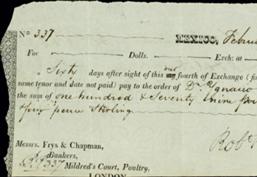 No 337 MEXICO, Febru
For Dolls. Exch: at
Sixty days after sight of this our fourth of Exchange (f
same tenor and date not paid) pay to the order of Dn Ignacio
the sum of one hundred & Seventy Nine Pou
four pence Sterling
Robt
Messrs. Frys & Chapman,
Bankers,
337 Mildred's Court, Poultry,
LONDON